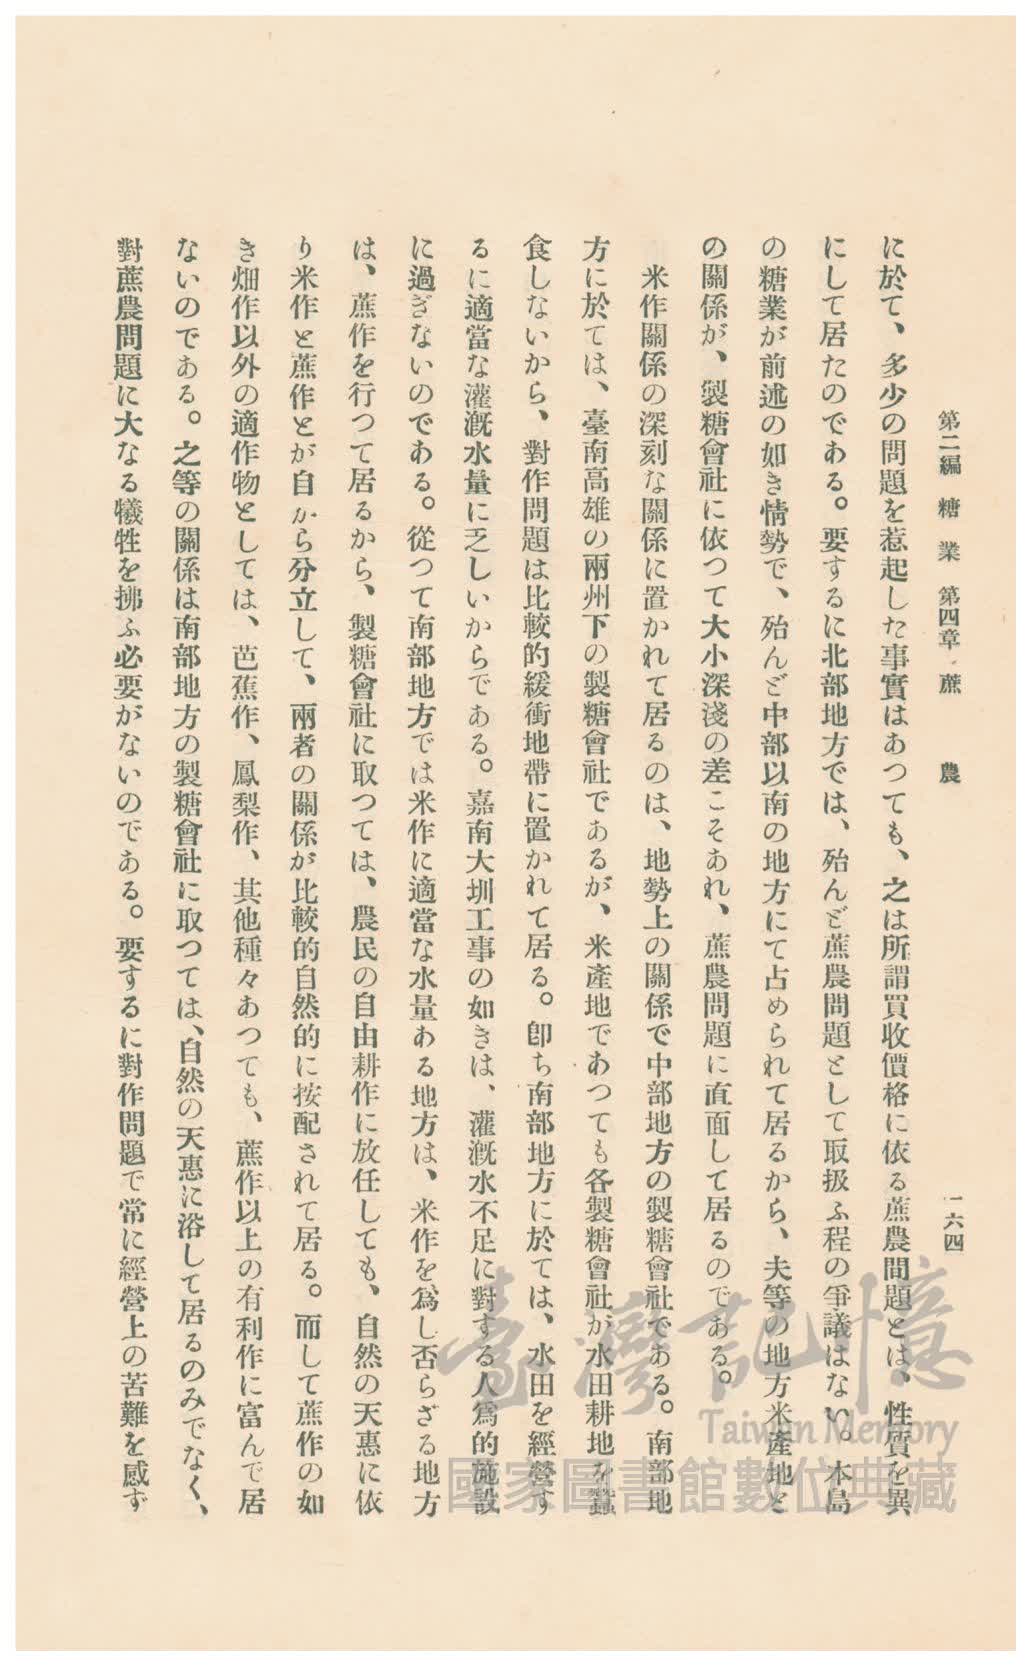 第二編 糖業 第四章 蔗農
一六四
に於て、多少の問題を惹起した事實はあつても、之は所謂買收價格に依る蔗農問題とは、性質を異
にして居たのである。要するに北部地方では、殆んど蔗農問題として取扱ふ程の爭議はない。本島
の糖業が前述の如き情勢で、殆んど中部以南の地方にて占められて居るから、夫等の地方米產地と
の關係が、製糖會社に依つて大小深淺の差こそあれ、蔗農問題に直面して居るのである。
米作關係の深刻な關係に置かれて居るのは、地勢上の關係で中部地方の製糖會社である。南部地
方に於ては、臺南高雄の兩州下の製糖會社であるが、米產地であつても各製糖會社が水田耕地を蠶
食しないから、對作問題は比較的緩衝地帶に置かれて居る。卽ち南部地方に於ては、水田を經營す
るに適當な灌漑水量に乏しいからである。嘉南大圳工事の如きは、灌漑水不足に對する人爲的施設
に過ぎないのである。從つて南部地方では米作に適當な水量ある地方は、米作を爲し否らざる地方
は、蔗作を行つて居るから、製糖會社に取つては、農民の自由耕作に放任しても、自然の天惠に依
り米作と蔗作とが自から分立して、兩者の關係が比較的自然的に按配されて居る。而して蔗作の如
き畑作以外の適作物としては、芭蕉作、鳳梨作、其他種々あつても、蔗作以上の有利作に富んで居
ないのである。之等の關係は南部地方の製糖會社に取つては、自然の天惠に浴して居るのみでなく、
對蔗農問題に大なる犧牲を拂ふ必要がないのである。要するに對作問題で常に經營上の苦難を感ず
臺灣記憶
Taiwan Memory
國家圖書館數位典藏